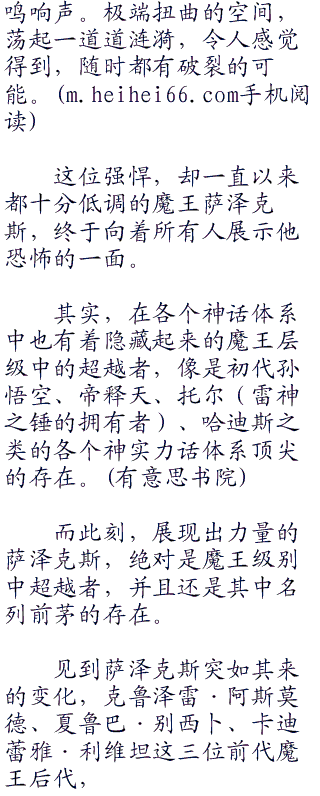 鸣响声。极端扭曲的空间，
荡起一道道涟漪，令人感觉
得到，随时都有破裂的可
能。(m.heihei66.com手机阅
读)
这位强悍，却一直以来
都十分低调的魔王萨泽克
斯，终于向着所有人展示他
恐怖的一面。
其实，在各个神话体系
中也有着隐藏起来的魔王层
级中的超越者，像是初代孙
悟空、帝释天、托尔（雷神
之锤的拥有者）、哈迪斯之
类的各个神实力话体系顶尖
的存在。(有意思书院)
而此刻，展现出力量的
萨泽克斯，绝对是魔王级别
中超越者，并且还是其中名
列前茅的存在。
见到萨泽克斯突如其来
的变化，克鲁泽雷·阿斯莫
德、夏鲁巴·别西卜、卡迪
蕾雅·利维坦这三位前代魔
王后代，